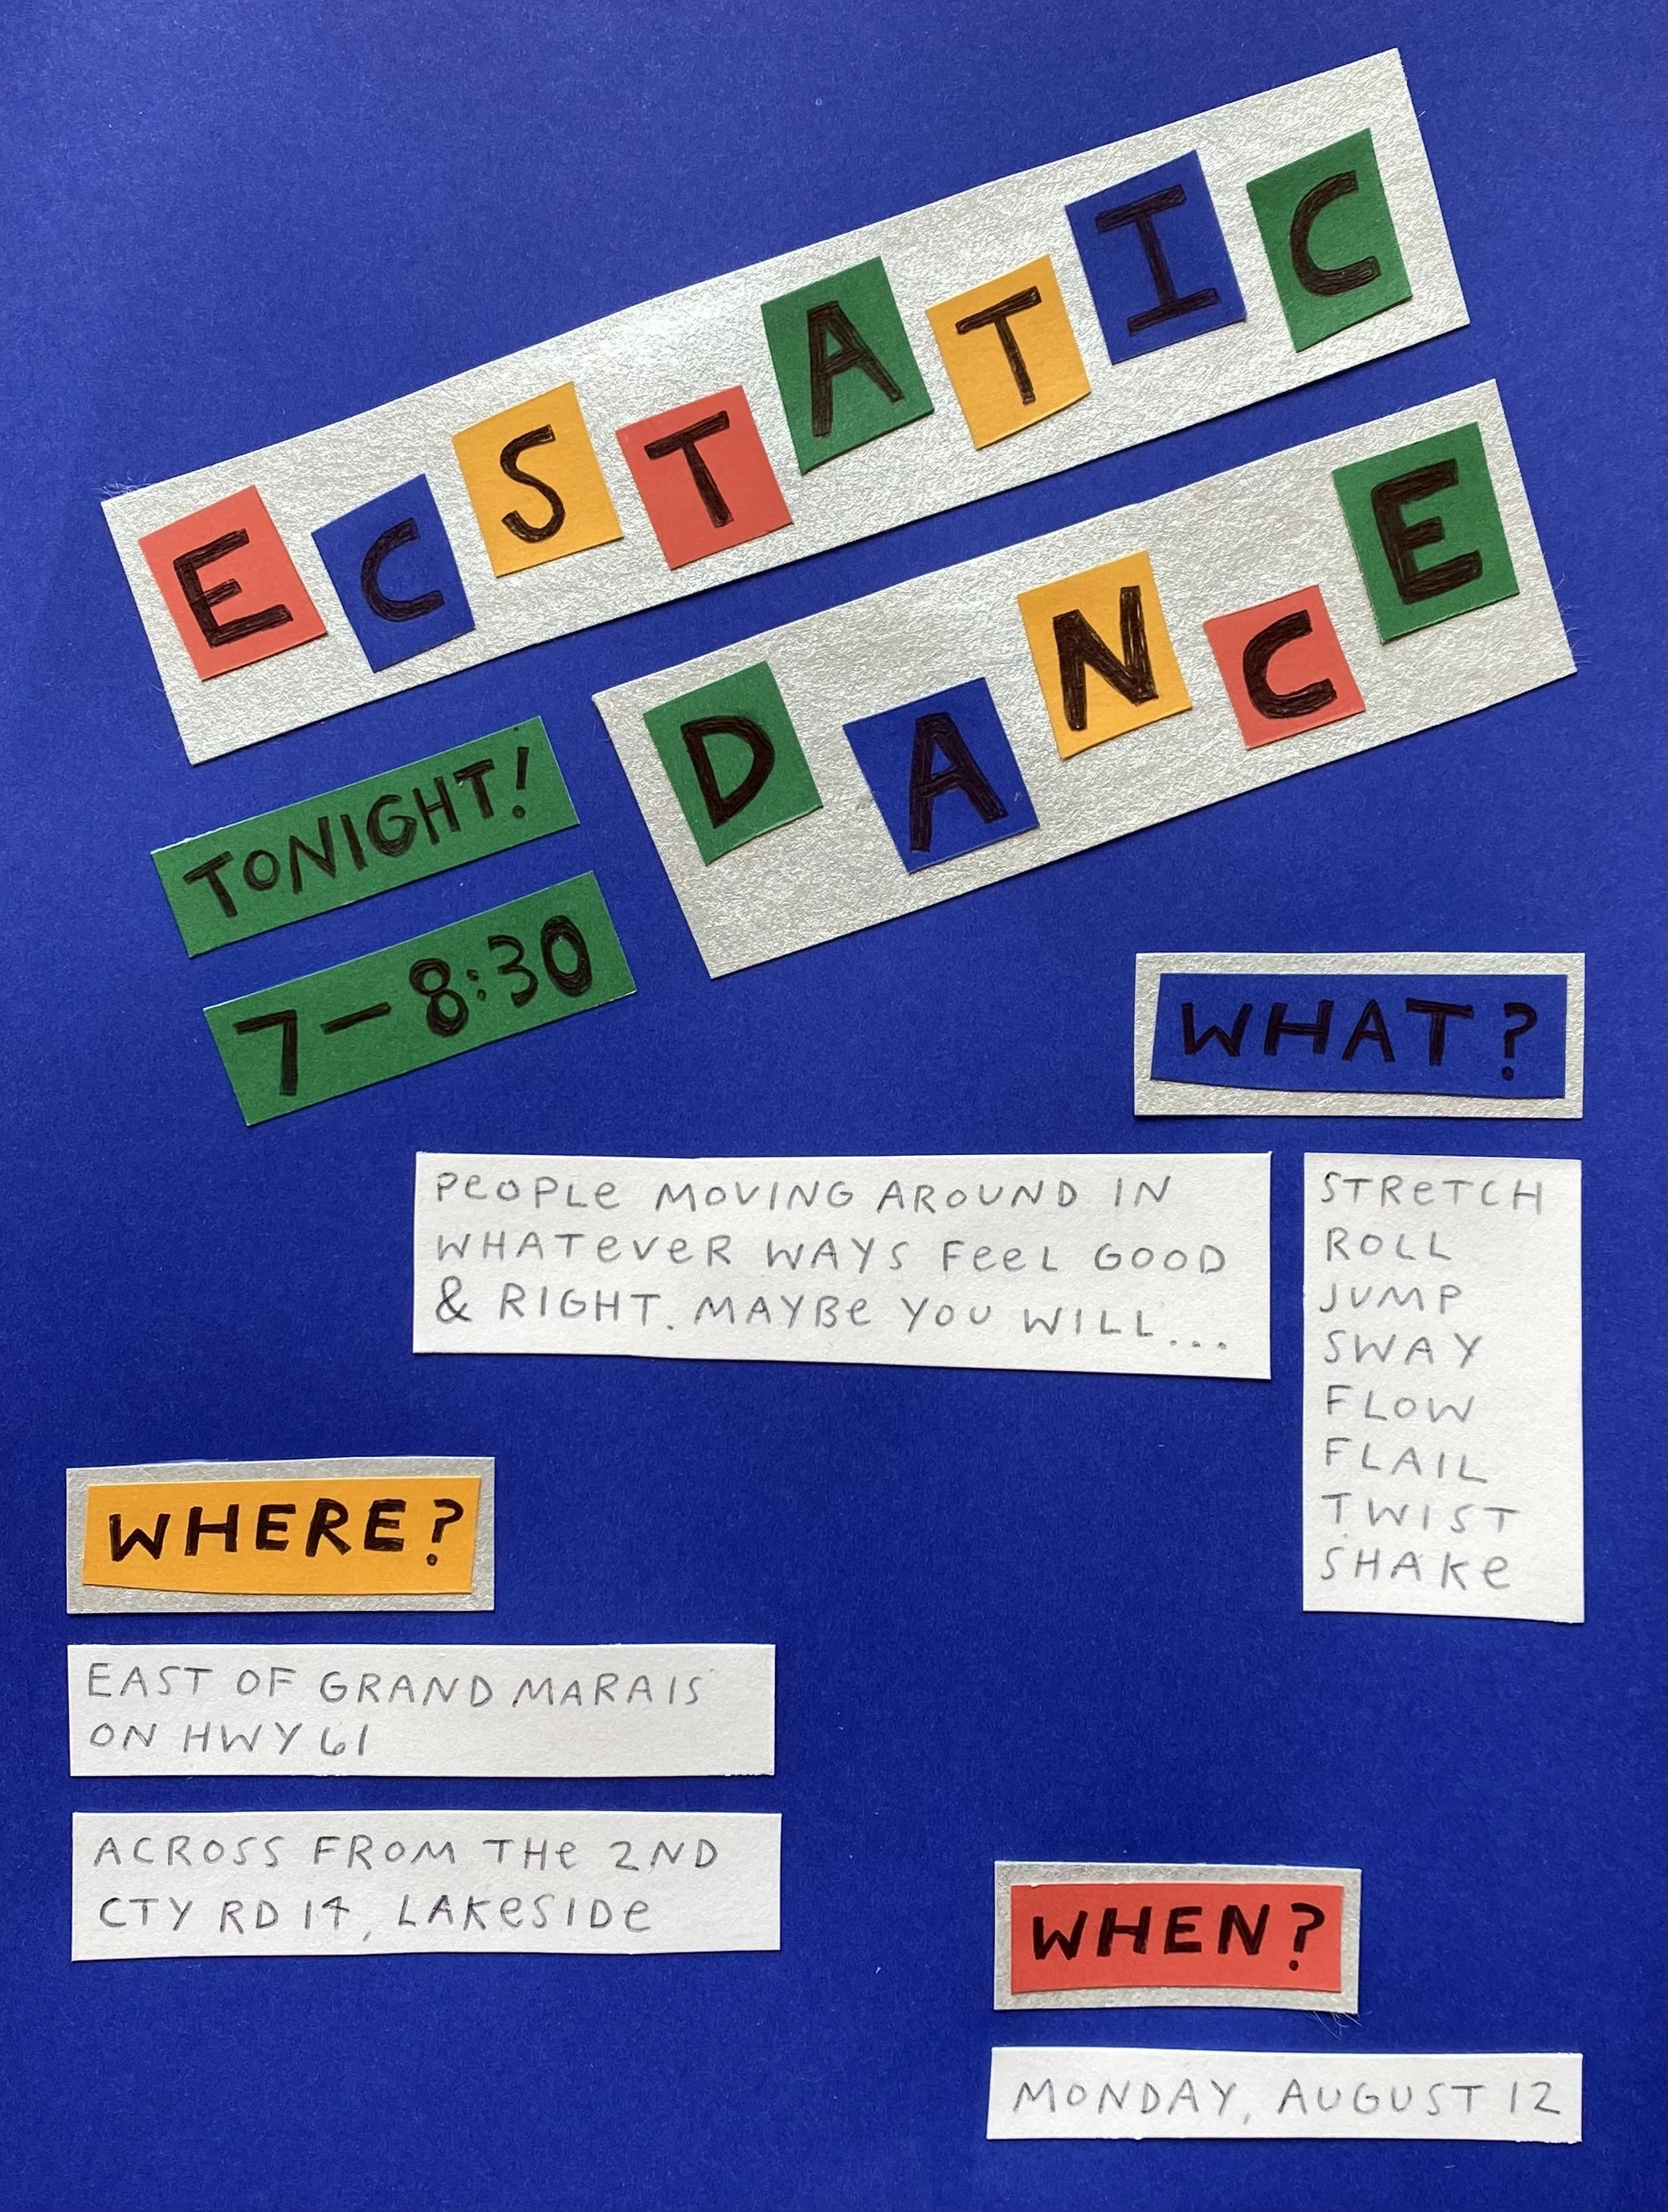 ECSTATIC
DANCE
TONIGHT!
7-8:30
WHAT?
PEOPLE MOVING AROUND IN
WHATEVER WAYS FEEL GOOD
& RIGHT. MAYBE YOU WILL...
STRETCH
ROLL
JUMP
SWAY
FLOW
FLAIL
TWIST
SHAKE
WHERE?
EAST OF GRAND MARAIS
ON HWY 61
ACROSS FROM THE 2ND
CTY RD 14, LAKESIDE
WHEN?
MONDAY, AUGUST 12